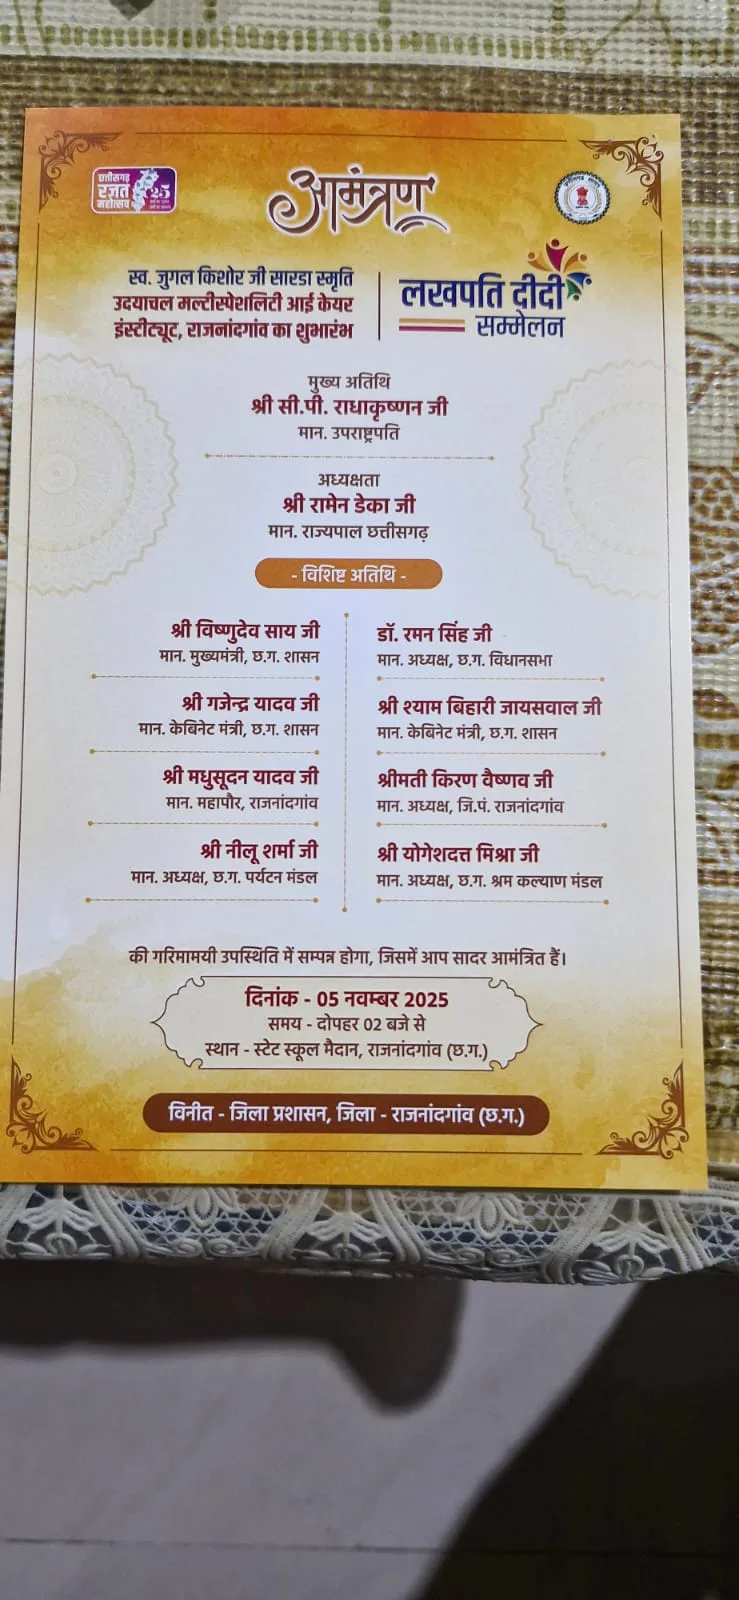 छत्तीसगढ़
रजत
महोत्सव
25
आमंत्रण
स्व. जुगल किशोर जी सारडा स्मृति
उदयाचल मल्टीस्पेशलिटी आई केयर
इंस्टीट्यूट, राजनांदगांव का शुभारंभ
लखपति दीदी
सम्मेलन
मुख्य अतिथि
श्री सी.पी. राधाकृष्णन जी
मान. उपराष्ट्रपति
अध्यक्षता
श्री रामेन डेका जी
मान. राज्यपाल छत्तीसगढ़
- विशिष्ट अतिथि -
श्री विष्णुदेव साय जी
मान. मुख्यमंत्री, छ.ग. शासन
डॉ. रमन सिंह जी
मान. अध्यक्ष, छ.ग. विधानसभा
श्री गजेन्द्र यादव जी
मान. केबिनेट मंत्री, छ.ग. शासन
श्री श्याम बिहारी जायसवाल जी
मान. केबिनेट मंत्री, छ.ग. शासन
श्री मधुसूदन यादव जी
मान. महापौर, राजनांदगांव
श्रीमती किरण वैष्णव जी
मान. अध्यक्ष, जि.पं. राजनांदगांव
श्री नीलू शर्मा जी
मान. अध्यक्ष, छ.ग. पर्यटन मंडल
श्री योगेशदत्त मिश्रा जी
मान. अध्यक्ष, छ.ग. श्रम कल्याण मंडल
की गरिमामयी उपस्थिति में सम्पन्न होगा, जिसमें आप सादर आमंत्रित हैं।
दिनांक - 05 नवम्बर 2025
समय - दोपहर 02 बजे से
स्थान - स्टेट स्कूल मैदान, राजनांदगांव (छ.ग.)
विनीत - जिला प्रशासन, जिला - राजनांदगांव (छ.ग.)